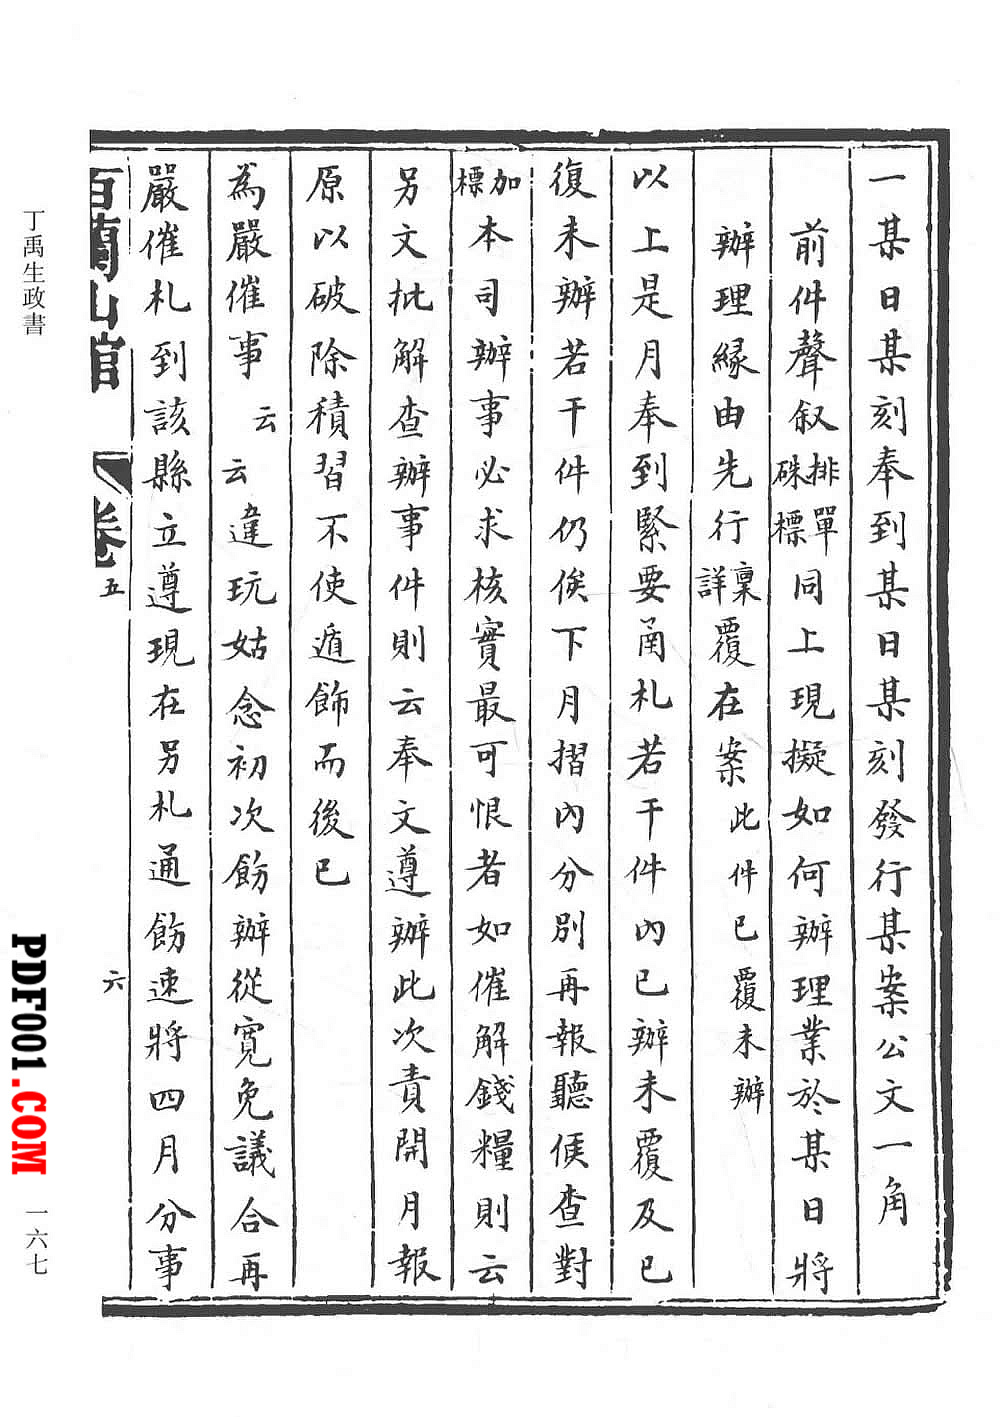 一某日某刻奉到某日某刻發行某案公文一角
前件聲叙排單硃標同上現擬如何辦理業於某日將
辦理緣由先行稟詳覆在案此件已覆未辦
以上是月奉到緊要甬札若干件內已辦未覆及已
復未辦若干件仍俟下月摺內分別再報聽候查對
加標本司辦事必求核實最可恨者如催解錢糧則云
另文批解查辦事件則云奉文遵辦此次責開月報
原以破除積習不使遁飾而後已
為嚴催事云云違玩姑念初次飭辦從寬免議合再
嚴催札到該縣立遵現在另札通飭速將四月分事
百蘭山館
卷五
六
丁禹生政書
一六七
PDF001.COM